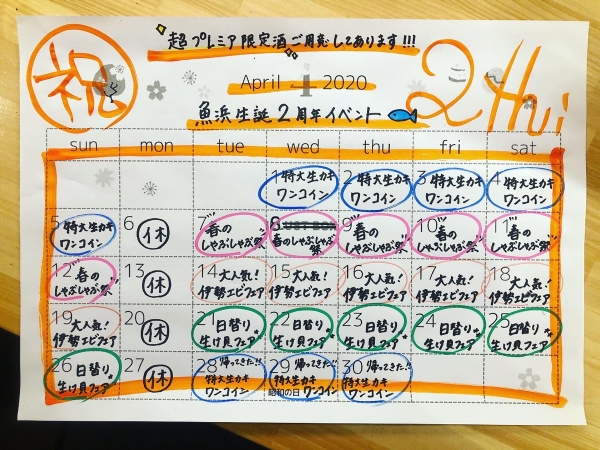 超プレミア限定酒ご用意してあります!!!
祝
April 4 2020
2nd
魚浜生誕2周年イベント
sun mon tue wed thu fri sat
1 特大生カキ ワンコイン
2 特大生カキ ワンコイン
3 特大生カキ ワンコイン
4 特大生カキ ワンコイン
5 特大生カキ ワンコイン
6 休
7 春の しゃぶしゃぶ祭
8 春のしゃぶしゃぶ祭
9 春の しゃぶしゃぶ祭
10 春の しゃぶしゃぶ祭
11 春の しゃぶしゃぶ祭
12 春の しゃぶしゃぶ祭
13 休
14 大人気! 伊勢エビフェア
15 大人気! 伊勢エビフェア
16 大人気! 伊勢エビフェア
17 大人気! 伊勢エビフェア
18 大人気! 伊勢エビフェア
19 大人気! 伊勢エビフェア
20 休
21 日替り 生け貝フェア
22 日替り 生け貝フェア
23 日替り 生け貝フェア
24 日替り 生け貝フェア
25 日替り 生け貝フェア
26 日替り 生け貝フェア
27 休
28 帰ってきた!! 特大生カキ ワンコイン
29 帰ってきた!! 特大生カキ ワンコイン 昭和の日
30 帰ってきた!! 特大生カキ ワンコイン